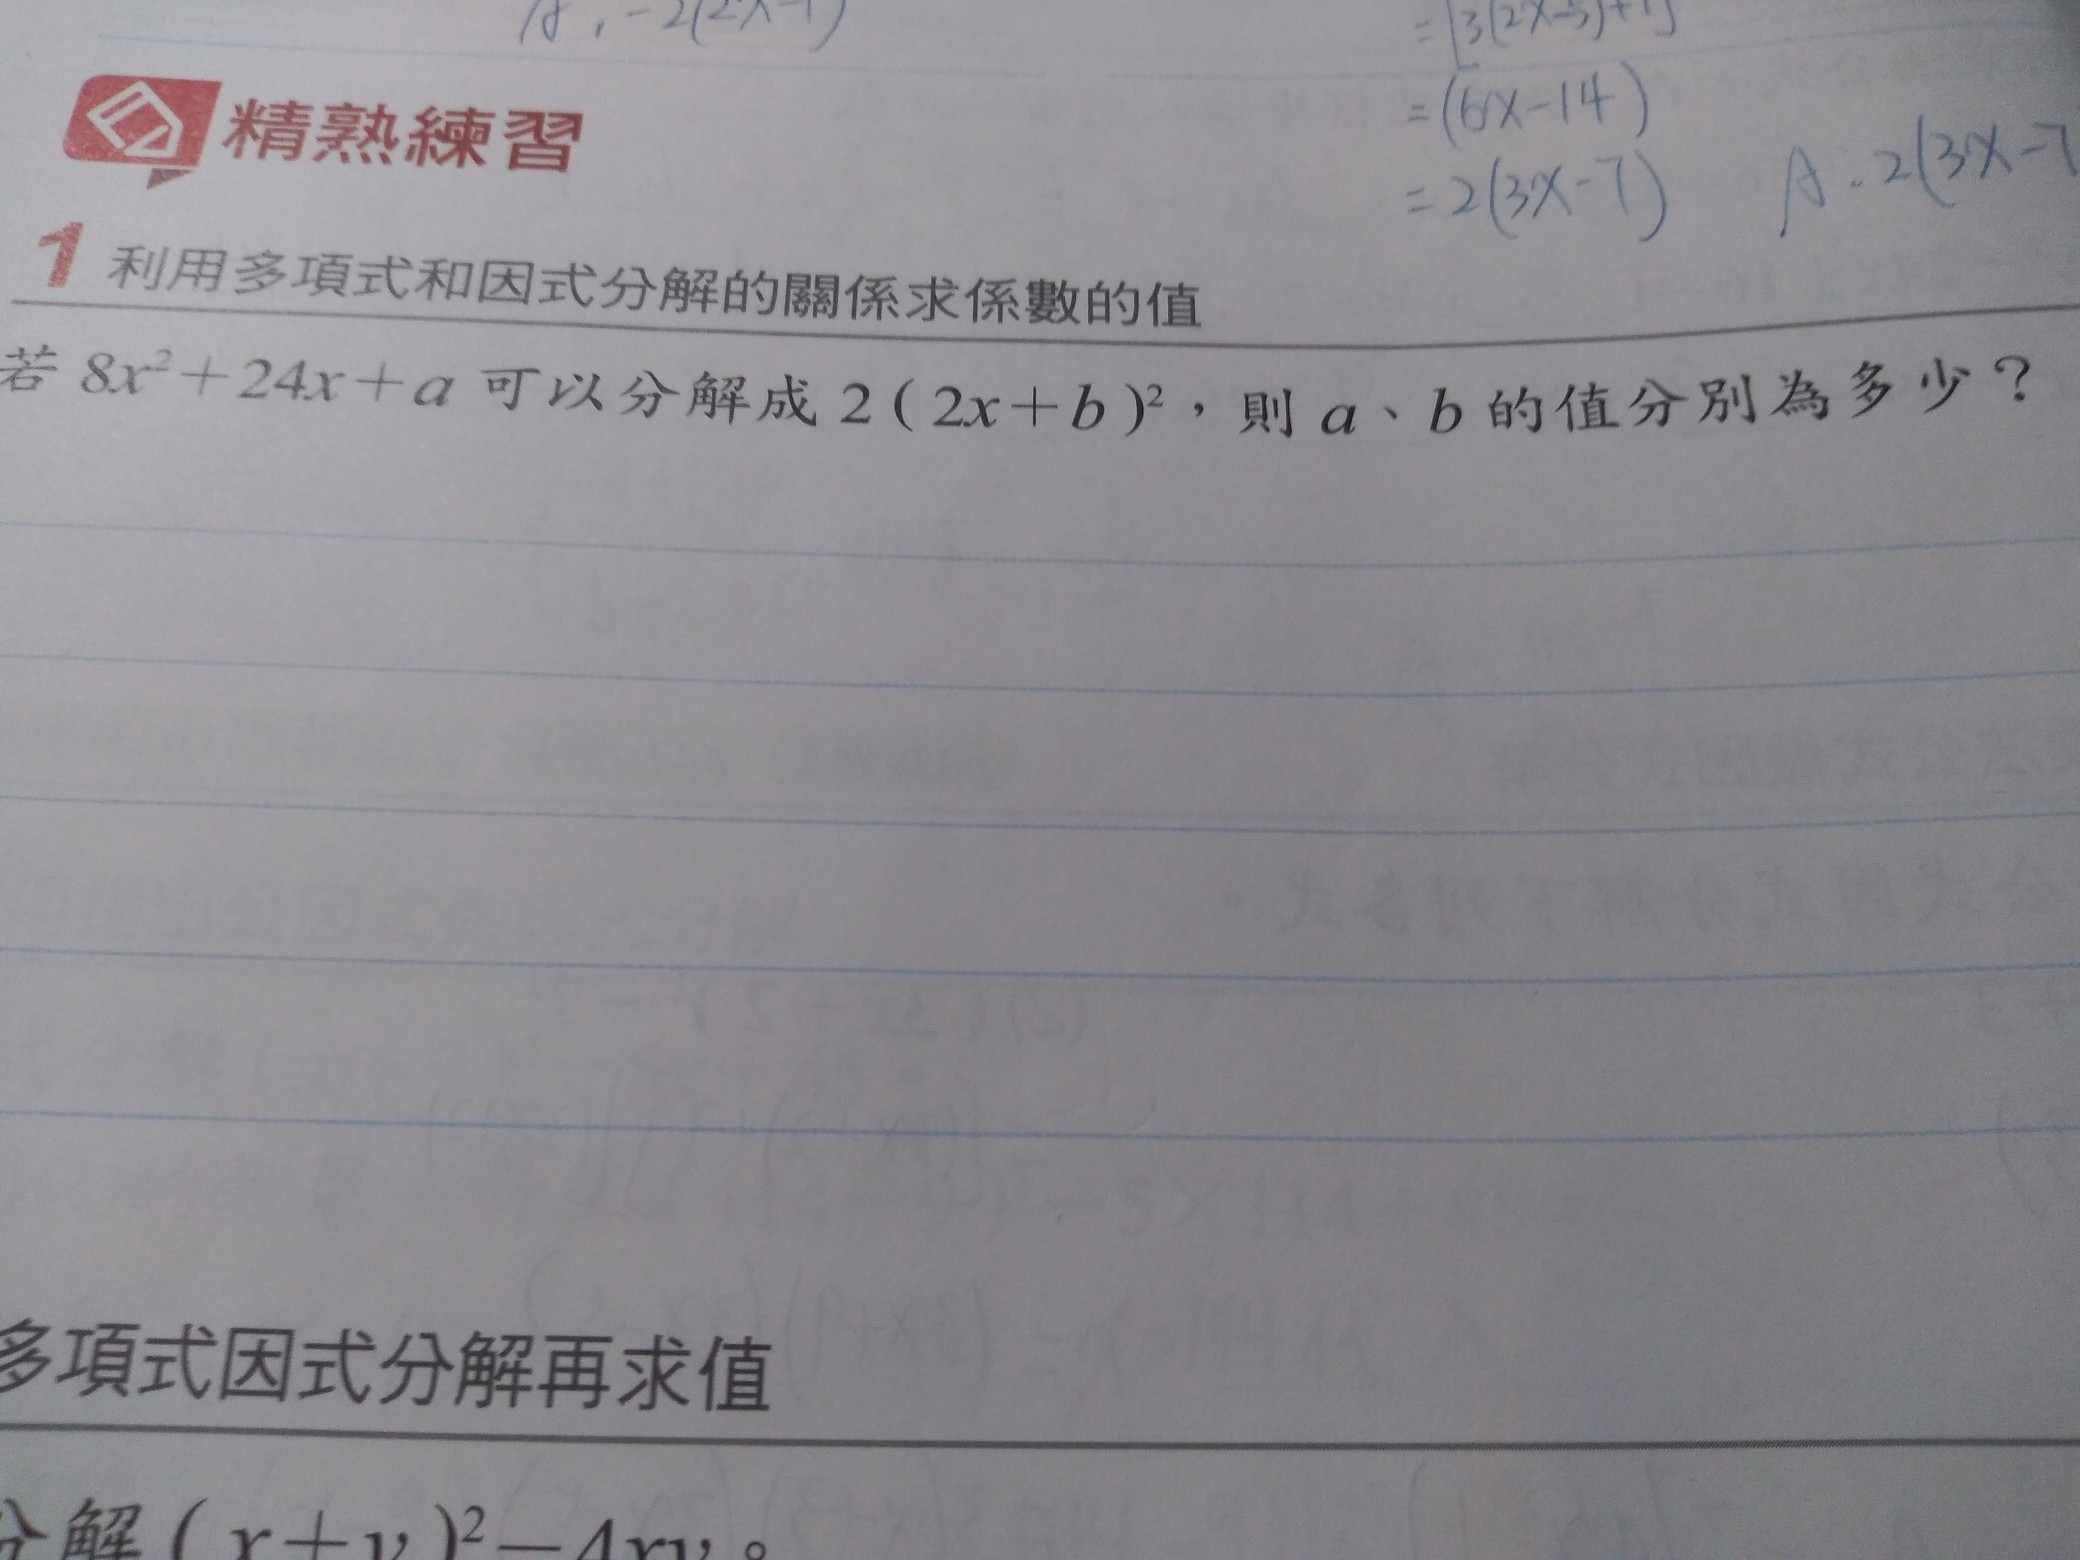 A: -2(2x-1)
= [3(2x-5)+1]
= (6x-14)
= 2(3x-7) A: 2(3x-7
精熟練習
1 利用多項式和因式分解的關係求係數的值
若 8x²+24x+a 可以分解成 2(2x+b)²，則 a、b 的值分別為多少？
多項式因式分解再求值
分解(x+y)²-4xy。